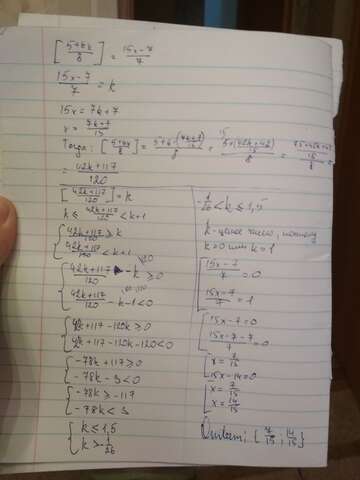 [5+6x/8] = 15x-7/7
15x-7/7 = k
15x = 7k+7
x = 7k+7/15
Тогда: [5+6x/8] =
= 42k+117/120
[42k+117/120] = k
k ≤ 42k+117/120 < k+1
{ 42k+117/120 ≥ k
42k+117/120 < k+1
{ 42k+117/120 - k ≥ 0
42k+117/120 - k - 1 < 0
{ 42k+117-120k ≥ 0
42k+117-120k-120 < 0
{ -78k+117 ≥ 0
-78k-3 < 0
{ -78k ≥ -117
-78k < 3
{ k ≤ 1,5
k > -1/26
-1/26 < k ≤ 1,5
k-целое число, поэтому
k=0 или k=1
[ 15x-7/7 = 0
15x-7/7 = 1
[ 15x-7=0
15x-7-7/7 = 0
[ x = 7/15
15x-14=0
[ x = 7/15
x = 14/15
Ответ: { 7/15 ; 14/15 }